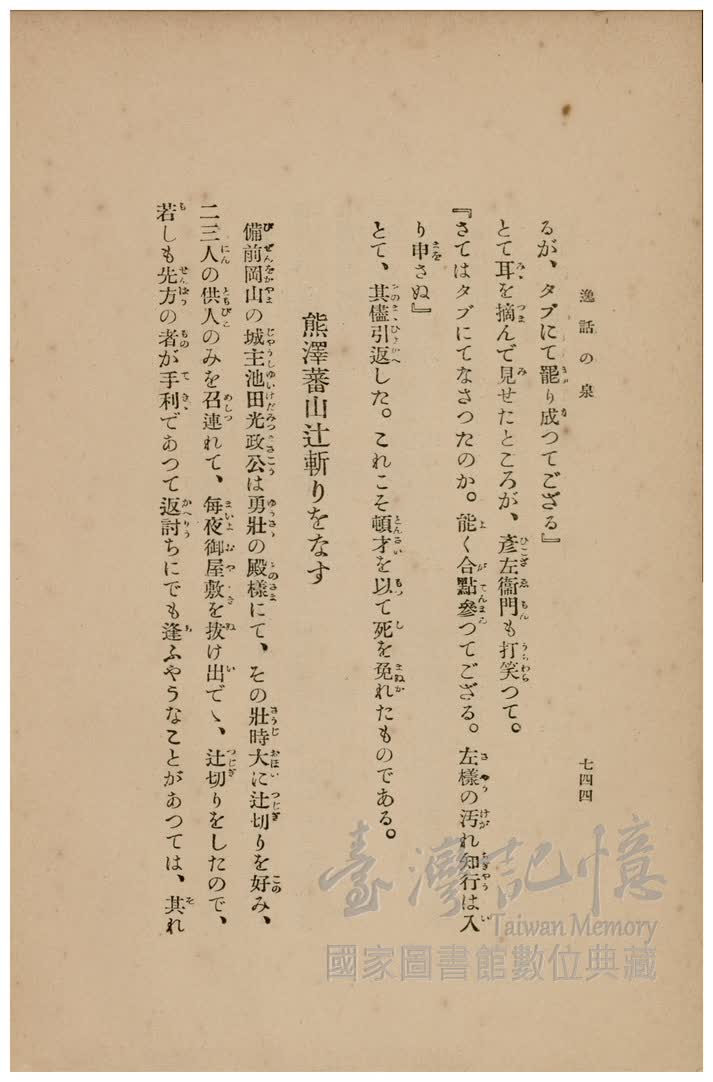 逸話の泉
七四四
るが、タブにて罷り成つてござる』
とて耳を摘んで見せたところが、彥左衞門も打笑つて。
『さてはタブにてなさつたのか。能く合點參つてござる。左樣の汚れ知行は入
り申さぬ』
とて、其儘引返した。これこそ頓才を以て死を免れたものである。
熊澤蕃山辻斬りをなす
備前岡山の城主池田光政公は勇壯の殿樣にて、その壯時大に辻切りを好み、
二三人の供人のみを召連れて、每夜御屋敷を拔け出でゝ、辻切りをしたので、
若しも先方の者が手利であつて返討ちにでも逢ふやうなことがあつては、其れ
臺灣記憶
Taiwan Memory
國家圖書館數位典藏